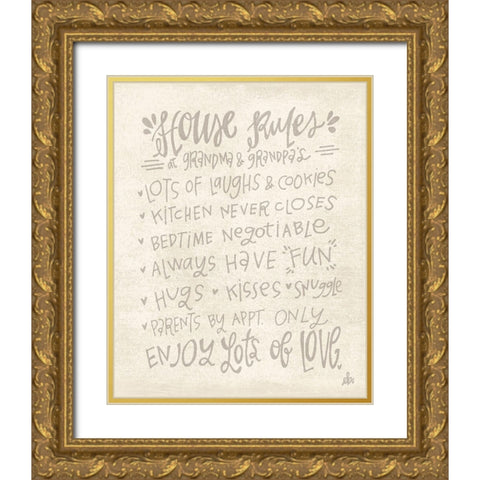 House Rules
at GRANDMA & GRANDPA'S
LOTS OF LAUGHS & COOKIES
KITCHEN NEVER CLOSES
BEDTIME NegOTIABLE
ALWAYS HAVE "FUN"
HUgS KISSES SNuggLE
PARENTS BY APPT. ONLY
ENJOY LOTS OF LOVE